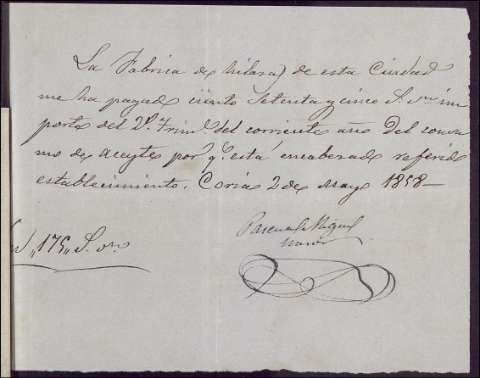 La Fabrica de hilaza de esta Ciudad
me ha pagado ciento Setenta y cinco r.s vn im
porte del 2º. Trim.e del corriente año Del consu
mo de Aceytes por q.e está encabezado referido
establecimiento. Coria 2 de Mayo 1858—
Pascual Miguel
„175„ r.s vn.